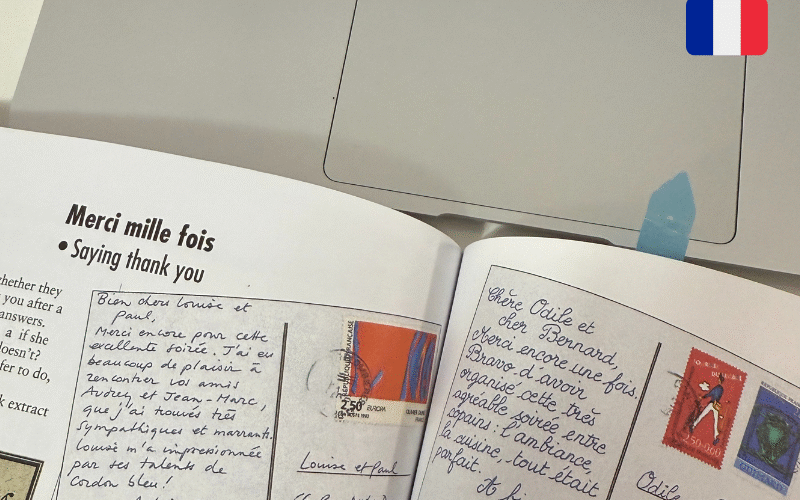 Merci mille fois
• Saying thank you
whether they
you after a
answers.
a if she
doesn't?
fer to do,
k extract
Bien chers Louise et
Paul,
Merci encore pour cette
excellente soirée. J'ai eu
beaucoup de plaisir à
rencontrer vos amis
Audrey et Jean-Marc,
que j'ai trouvés très
sympathiques et marrants.
Louise m'a impressionnée
par ses talents de
Cordon bleu!
RÉPUBLIQUE FRANÇAISE
2,50
EUROPA
Louise et Paul
Chère Odile et
cher Bernard,
Merci encore une fois.
Bravo d'avoir
organisé cette très
agréable soirée entre
copains: l'ambiance,
la cuisine, tout était
parfait.
2,50+0,60
Odile